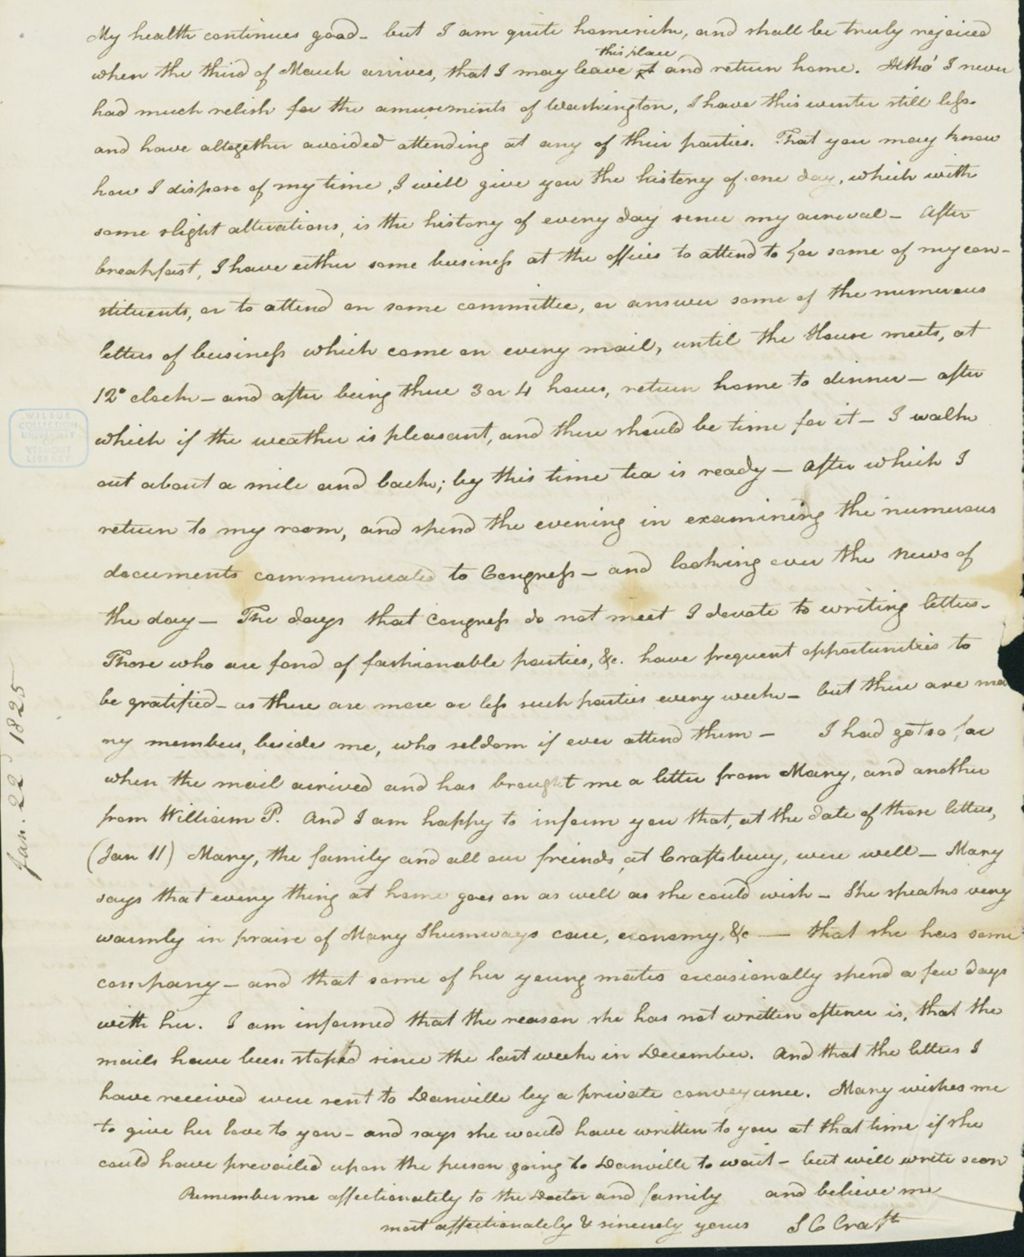 My health continues good – but I am quite homesick, and shall be truly rejoiced
this place
when the third of March arrives, that I may leave it and return home. Altho' I never
had much relish for the amusements of Washington, I have this winter still less.
and have altogether avoided attending at any of their parties. That you may know
how I dispose of my time, I will give you the history of one day, which with
some slight alterations, is the history of every day since my arrival – After
breakfast, I have either some business at the offices to attend to for some of my con-
stituents, or to attend on some committee, or answer some of the numerous
letters of business which come on every mail, until the House meets, at
12 o clock – and after being there 3 or 4 hours, return home to dinner – after
which if the weather is pleasant, and there should be time for it – I walk
out about a mile and back; by this time tea is ready – After which I
return to my room, and spend the evening in examining the numerous
documents communicated to Congress – and looking over the news of
the day – The days that Congress do not meet I devote to writing letters.
Those who are fond of fashionable parties, &c. have frequent opportunities to
be gratified – as there are more or less such parties every week – but there are ma
ny members, beside me, who seldom if ever attend them – I had got so far
when the mail arrived and has brought me a letter from Mary, and another
from William P. And I am happy to inform you that, at the date of those letters,
(Jan 11) Mary, the family and all our freinds, at Craftsbury, were well – Mary
says that every thing at home goes on as well as she could wish – She speaks very
warmly in praise of Mary Shumways care, economy, &c — that she has some
company – and that some of her young mates occasionally spend a few days
with her. I am informed that the reason she has not written oftener is, that the
mails have been stoped since the last week in December. And that the letters I
have received were sent to Danville by a private conveyance. Mary wishes me
to give her love to you – and says she would have written to you at that time if she
could have prevailed upon the person going to Danville to wait – but will write soon
Remember me affectionately to the Doctor and family and believe me
most affectionately & sincerely yours S C Crafts
Jan. 22d 1825
WILBUR
COLLECTION
UNIVERSITY
VERMONT
LIBRARY